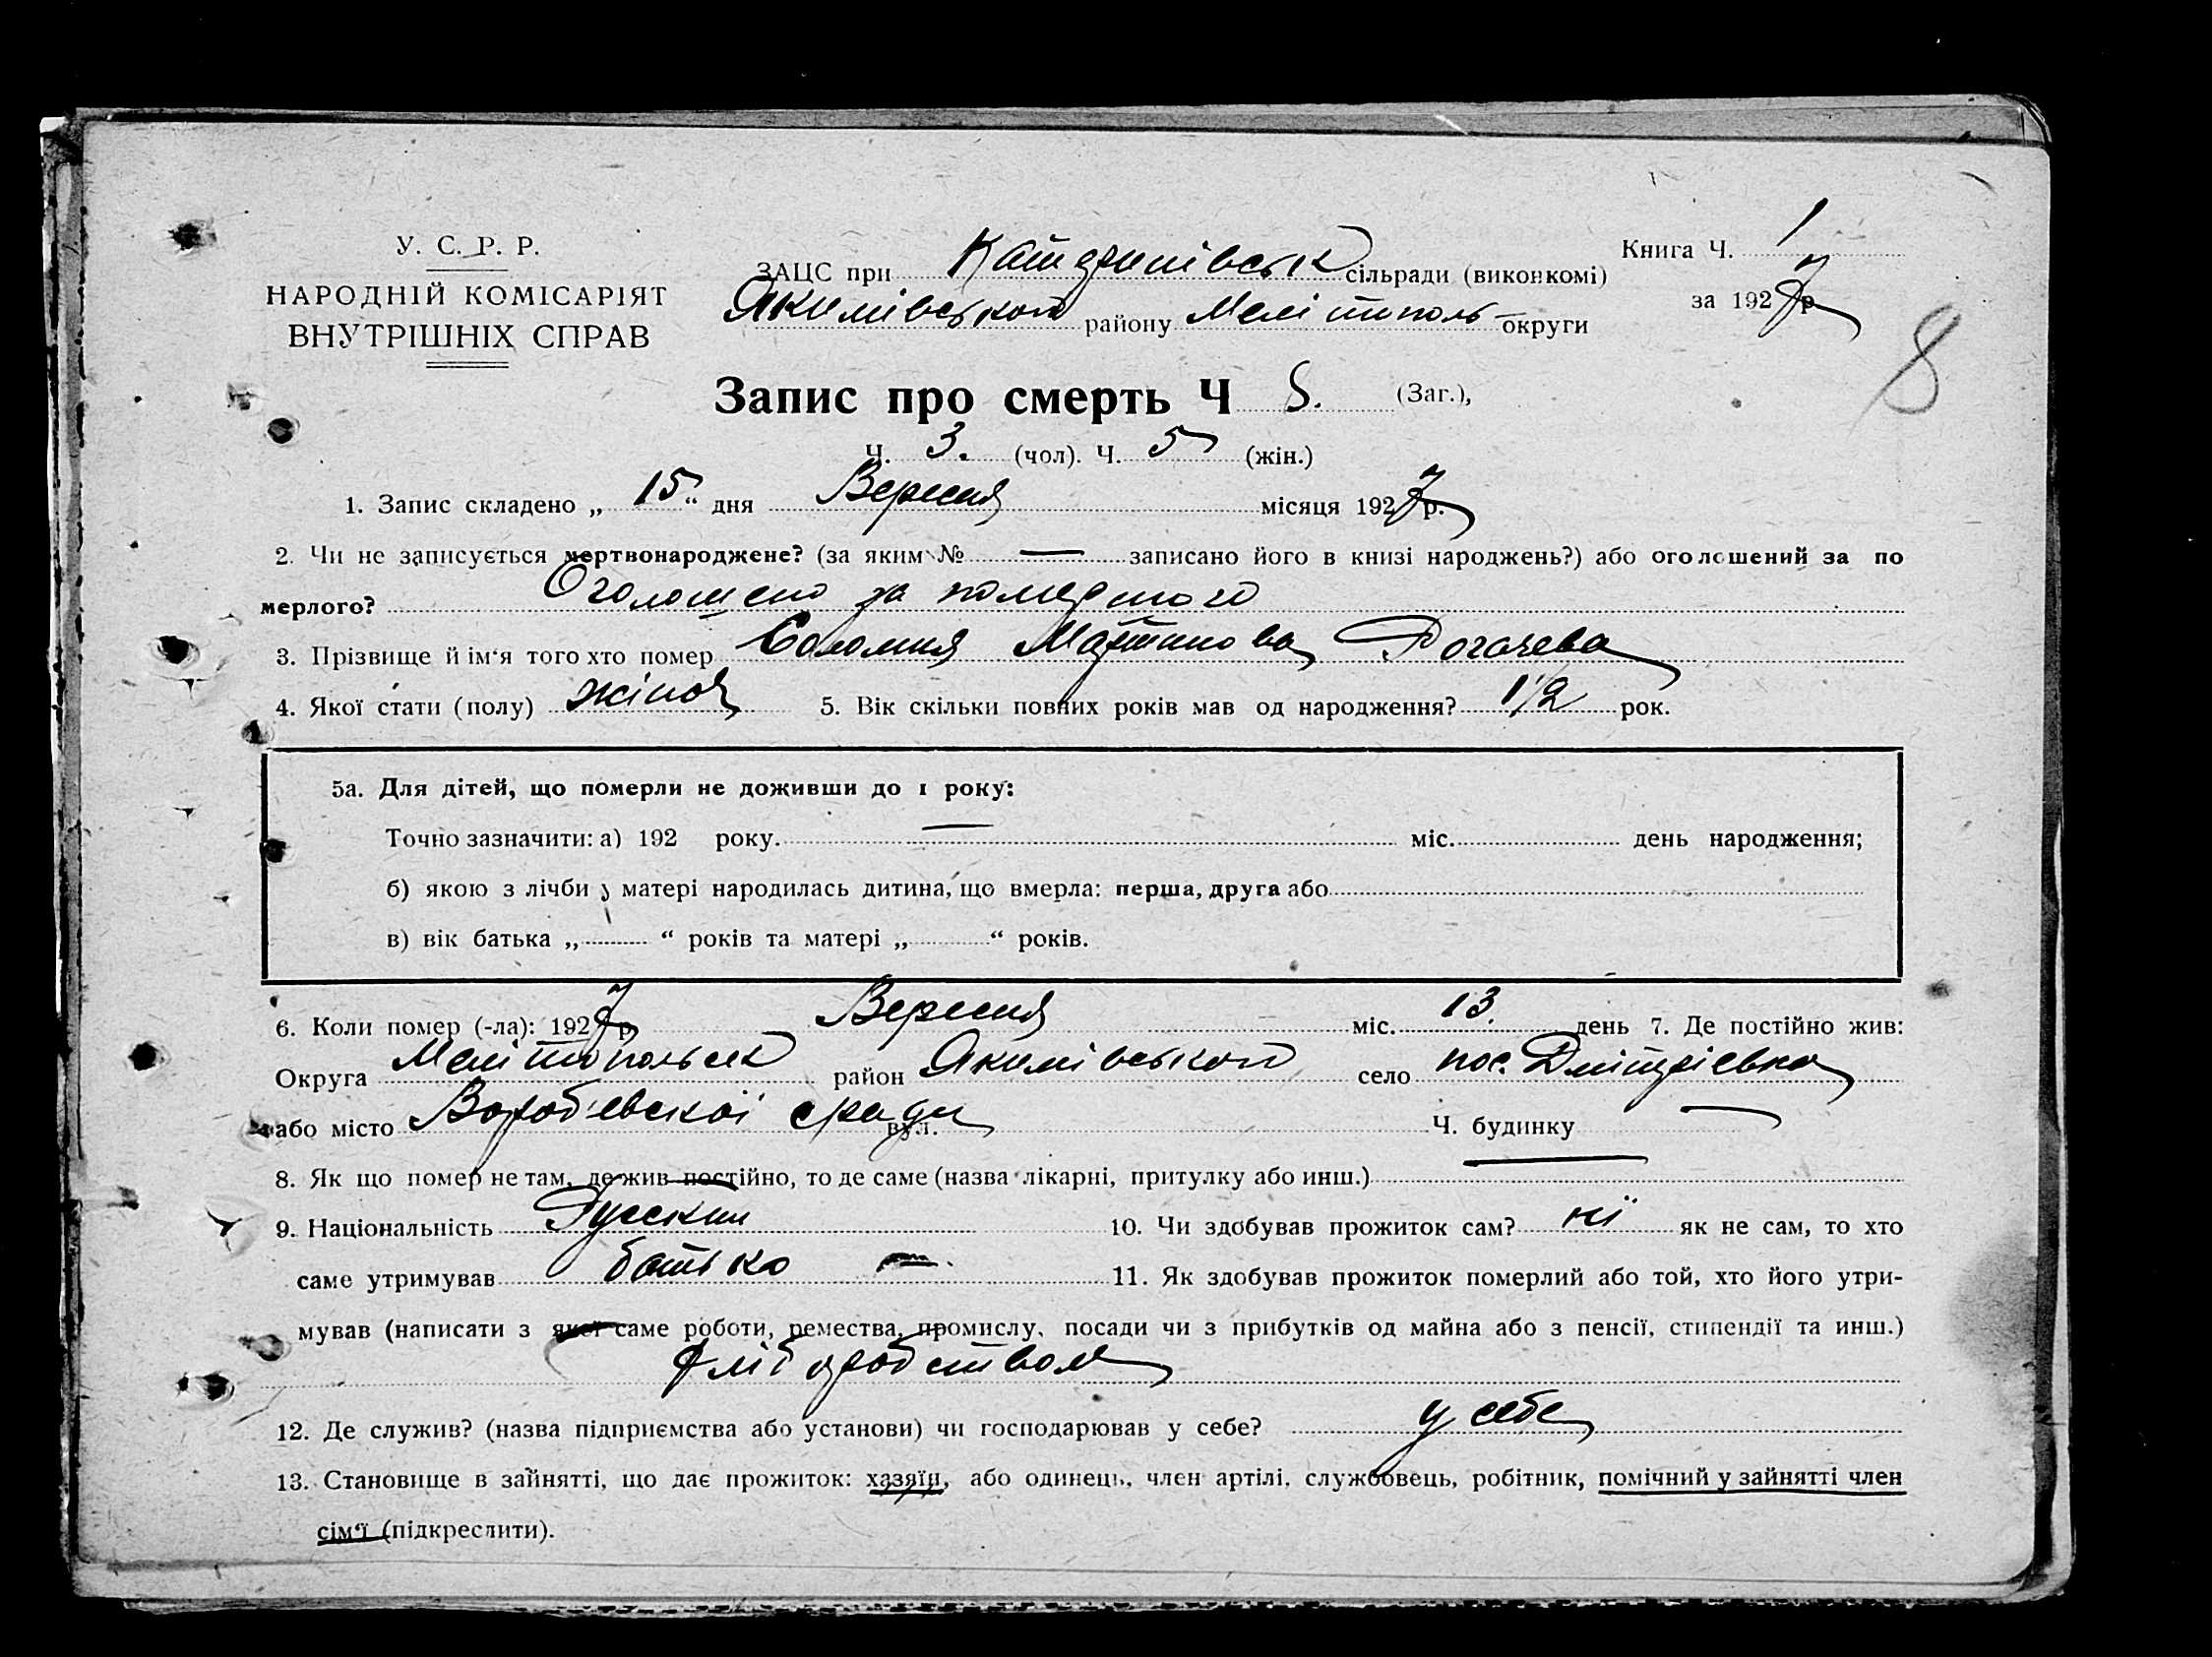 У. С. Р. Р.
НАРОДНІЙ КОМІСАРІЯТ
ВНУТРІШНІХ СПРАВ
ЗАЦС при Катеринівськ сільради (виконкомі)
Якимівського району Мелітополь округи
Книга Ч. 1
за 1927 р.
8
Запис про смерть Ч 8. (Заг.),
Ч. 3. (чол). Ч. 5 (жін.)
1. Запис складено „ 15 “ дня Вересня місяця 1927 р.
2. Чи не записується мертвонароджене? (за яким № — записано його в книзі народжень?) або оголошений за по
мерлого? Оголошено за померлого
3. Прізвище й ім‘я того хто помер Соломия Мартинова Рогачева
4. Якої стати (полу) жіноч 5. Вік скільки повних років мав од народження? 1/2 рок.
5а. Для дітей, що померли не доживши до 1 року:
Точно зазначити: а) 192 року. — міс. день народження;
б) якою з лічби у матері народилась дитина, що вмерла: перша, друга або
в) вік батька „ “ років та матері „ “ років.
6. Коли помер (-ла): 1927 р. Вересня міс. 13. день 7. Де постійно жив:
Округа Мелітопольськ район Якимівського село пос. Дмітрієвка
або місто Вороб'євскої с/ради вул. Ч. будинку —
8. Як що помер не там, де жив постійно, то де саме (назва лікарні, притулку або инш.) —
9. Національність Русский 10. Чи здобував прожиток сам? ні як не сам, то хто
саме утримував батько 11. Як здобував прожиток померлий або той, хто його утри-
мував (написати з якої саме роботи, ремества, промислу, посади чи з прибутків од майна або з пенсії, стипендії та инш.)
хліборобством
12. Де служив? (назва підприємства або установи) чи господарював у себе? у себе
13. Становище в зайнятті, що дає прожиток: хазяїн, або одинець, член артілі, службовець, робітник, помічний у зайнятті член
сім‘ї (підкреслити).